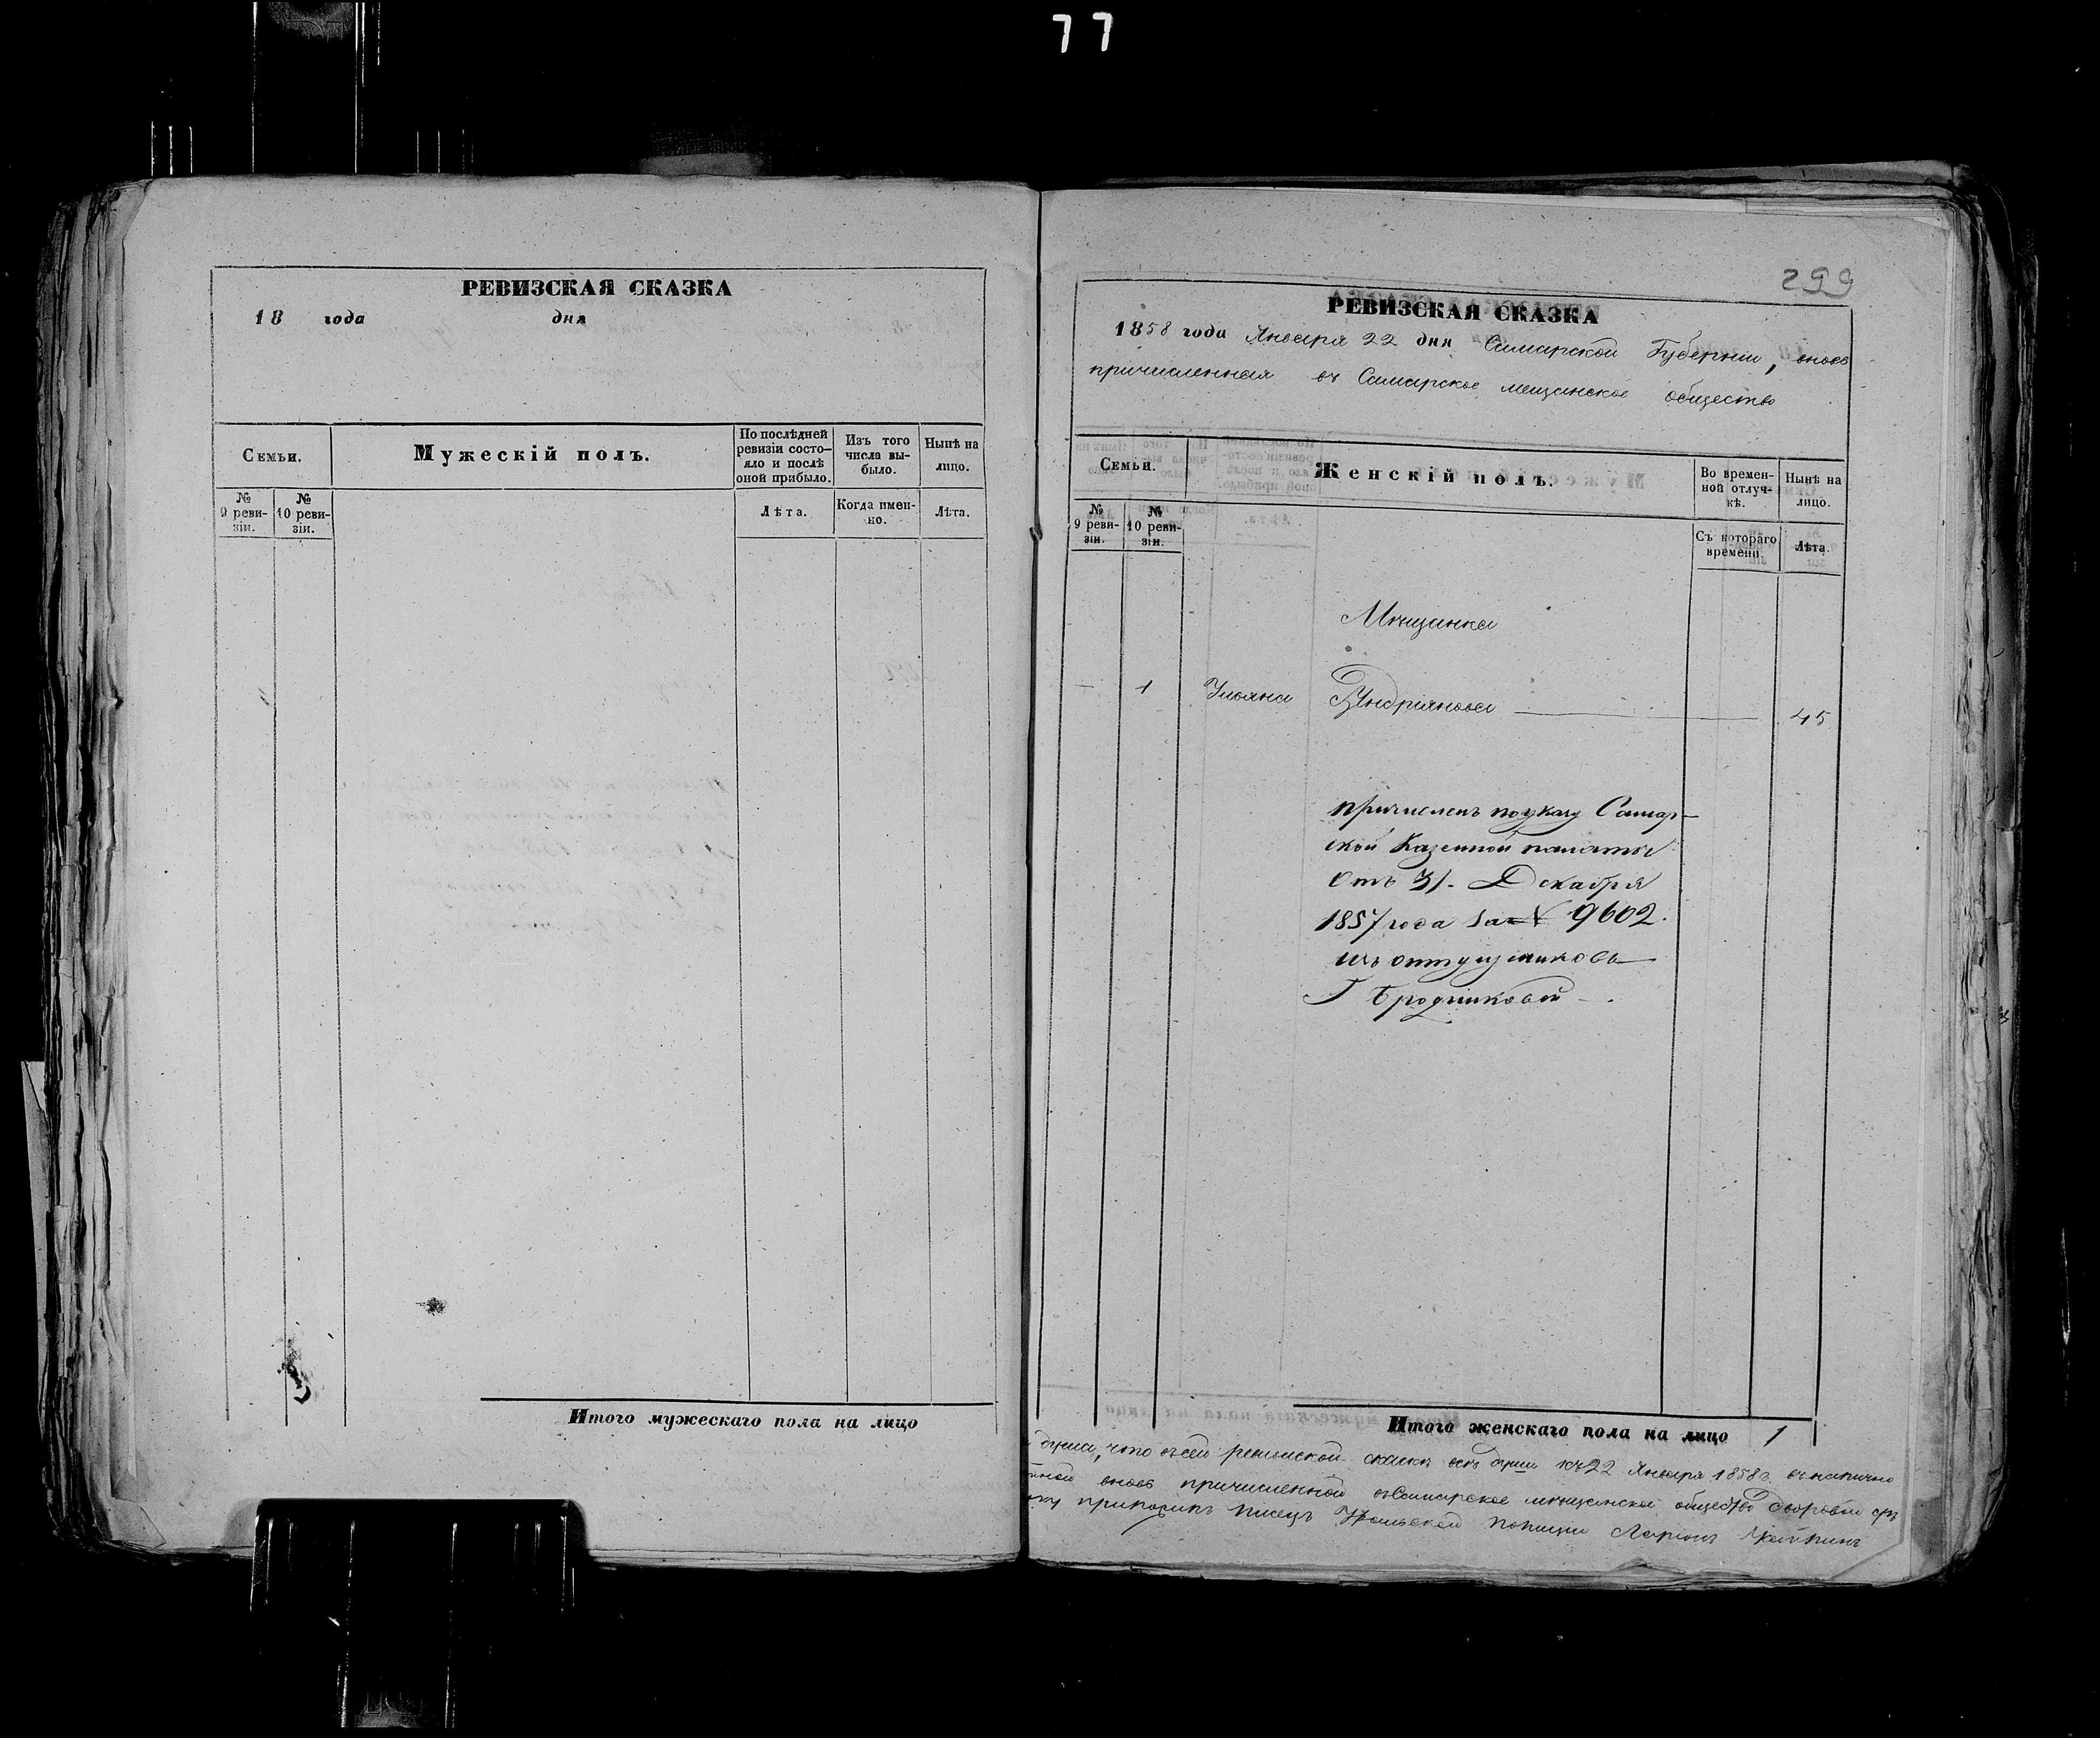 77
РЕВИЗСКАЯ СКАЗКА
18 года дня
Семьи.
Мужескій полъ.
По послѣдней ревизіи состо-
яло и послѣ оной прибыло.
Изъ того числа вы-
было.
Нынѣ на лицо.
№ 9 реви-
зіи.
№ 10 реви-
зіи.
Лѣта.
Когда имен-
но.
Лѣта.
Итого мужескаго пола на лицо
299
РЕВИЗСКАЯ СКАЗКА
1858 года Января 22 дня Самарской Губерніи, вновь
причисленная въ Самарское мещанское общество
Семьи.
Женскій полъ.
Во времен-
ной отлуч-
кѣ.
Нынѣ на лицо.
№ 9 реви-
зіи.
№ 10 реви-
зіи.
Съ котораго времени.
Лѣта.
Мѣщанка
— 1 Ульяна Андріянова 45
причисленъ по указу Самар-
ской Казенной палаты
отъ 31. Декабря
1857 года за № 9602.
изъ отпущенниковъ
Г Бродниковой
Итого женскаго пола на лицо 1
душа, что въ сей ревизской сказкѣ всѣ души къ 22 Января 1858 г. въ
вновь причисленной въ Самарское мѣщанское общество дворовой
писецъ полиціи Ларіонъ